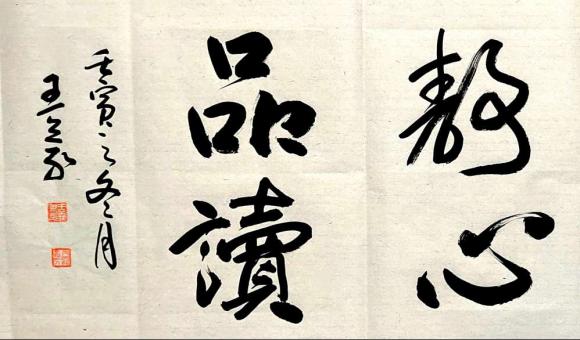 靜心
品讀
壬寅之冬月
王